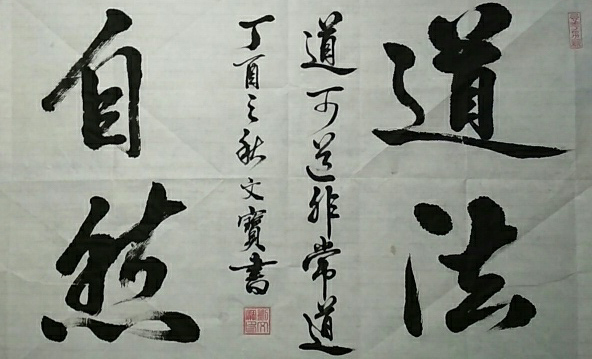 道法
道可道非常道
丁酉之秋文寶書
自然